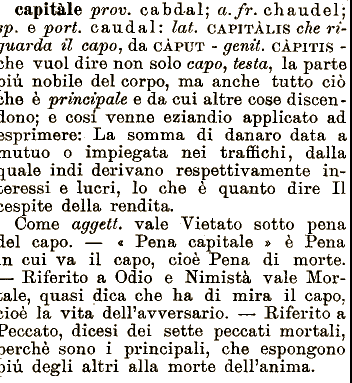 capitàle prov. cabdal; a.fr. chaudel;
sp. e port. caudal: lat. CAPITÀLIS che ri-
guarda il capo, da CÀPUT - genit. CÀPITIS -
che vuol dire non solo capo, testa, la parte
piú nobile del corpo, ma anche tutto ciò
che è principale e da cui altre cose discen-
dono; e cosí venne eziandio applicato ad
esprimere: La somma di danaro data a
mutuo o impiegata nei traffichi, dalla
quale indi derivano respettivamente in-
teressi e lucri, lo che è quanto dire Il
cespite della rendita.
Come aggett. vale Vietato sotto pena
del capo. — « Pena capitale » è Pena
in cui va il capo, cioè Pena di morte.
— Riferito a Odio e Nimistà vale Mor-
tale, quasi dica che ha di mira il capo,
cioè la vita dell'avversario. — Riferito a
Peccato, dicesi dei sette peccati mortali,
perchè sono i principali, che espongono
piú degli altri alla morte dell'anima.